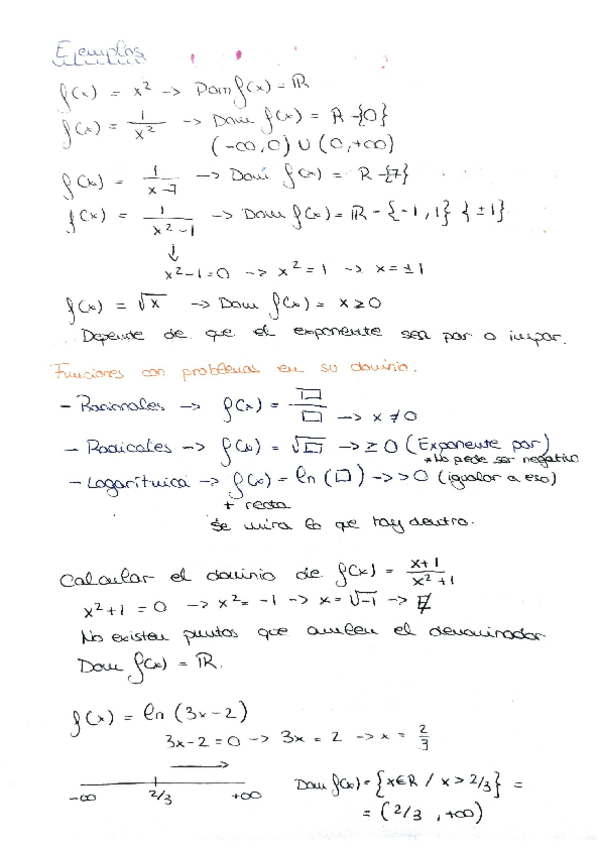 Ejemplos
f(x) = x² -> Dom f(x) = ℝ
f(x) = 1/x² -> Dom f(x) = R -{0}
(-∞,0) ∪ (0,+∞)
f(x) = 1/(x-7) -> Dom f(x) = R -{7}
f(x) = 1/(x²-1) -> Dom f(x) = ℝ - {-1, 1} {±1}
↓
x²-1=0 -> x²=1 -> x=±1
f(x) = √x -> Dom f(x) = x≥0
Depende de que el exponente sea par o impar.
Funciones con problemas en su dominio.
- Racionales -> f(x) = □/□ -> x≠0
- Radicales -> f(x) = √□ -> ≥0 (Exponente par)
*No pede ser negativo
- Logarítmica -> f(x) = ln (□) -> >0 (igualar a eso)
+ recta
Se mira lo que hay dentro.
Calcular el dominio de f(x) = (x+1)/(x²+1)
x²+1 = 0 -> x² = -1 -> x = √-1 -> ∄
No existen puntos que anulen el denominador
Dom f(x) = ℝ.
f(x) = ln (3x-2)
3x-2=0 -> 3x = 2 -> x = 2/3
→
-∞ 2/3 +∞
Dom f(x) = {x∈R / x > 2/3} =
= (2/3, +∞)